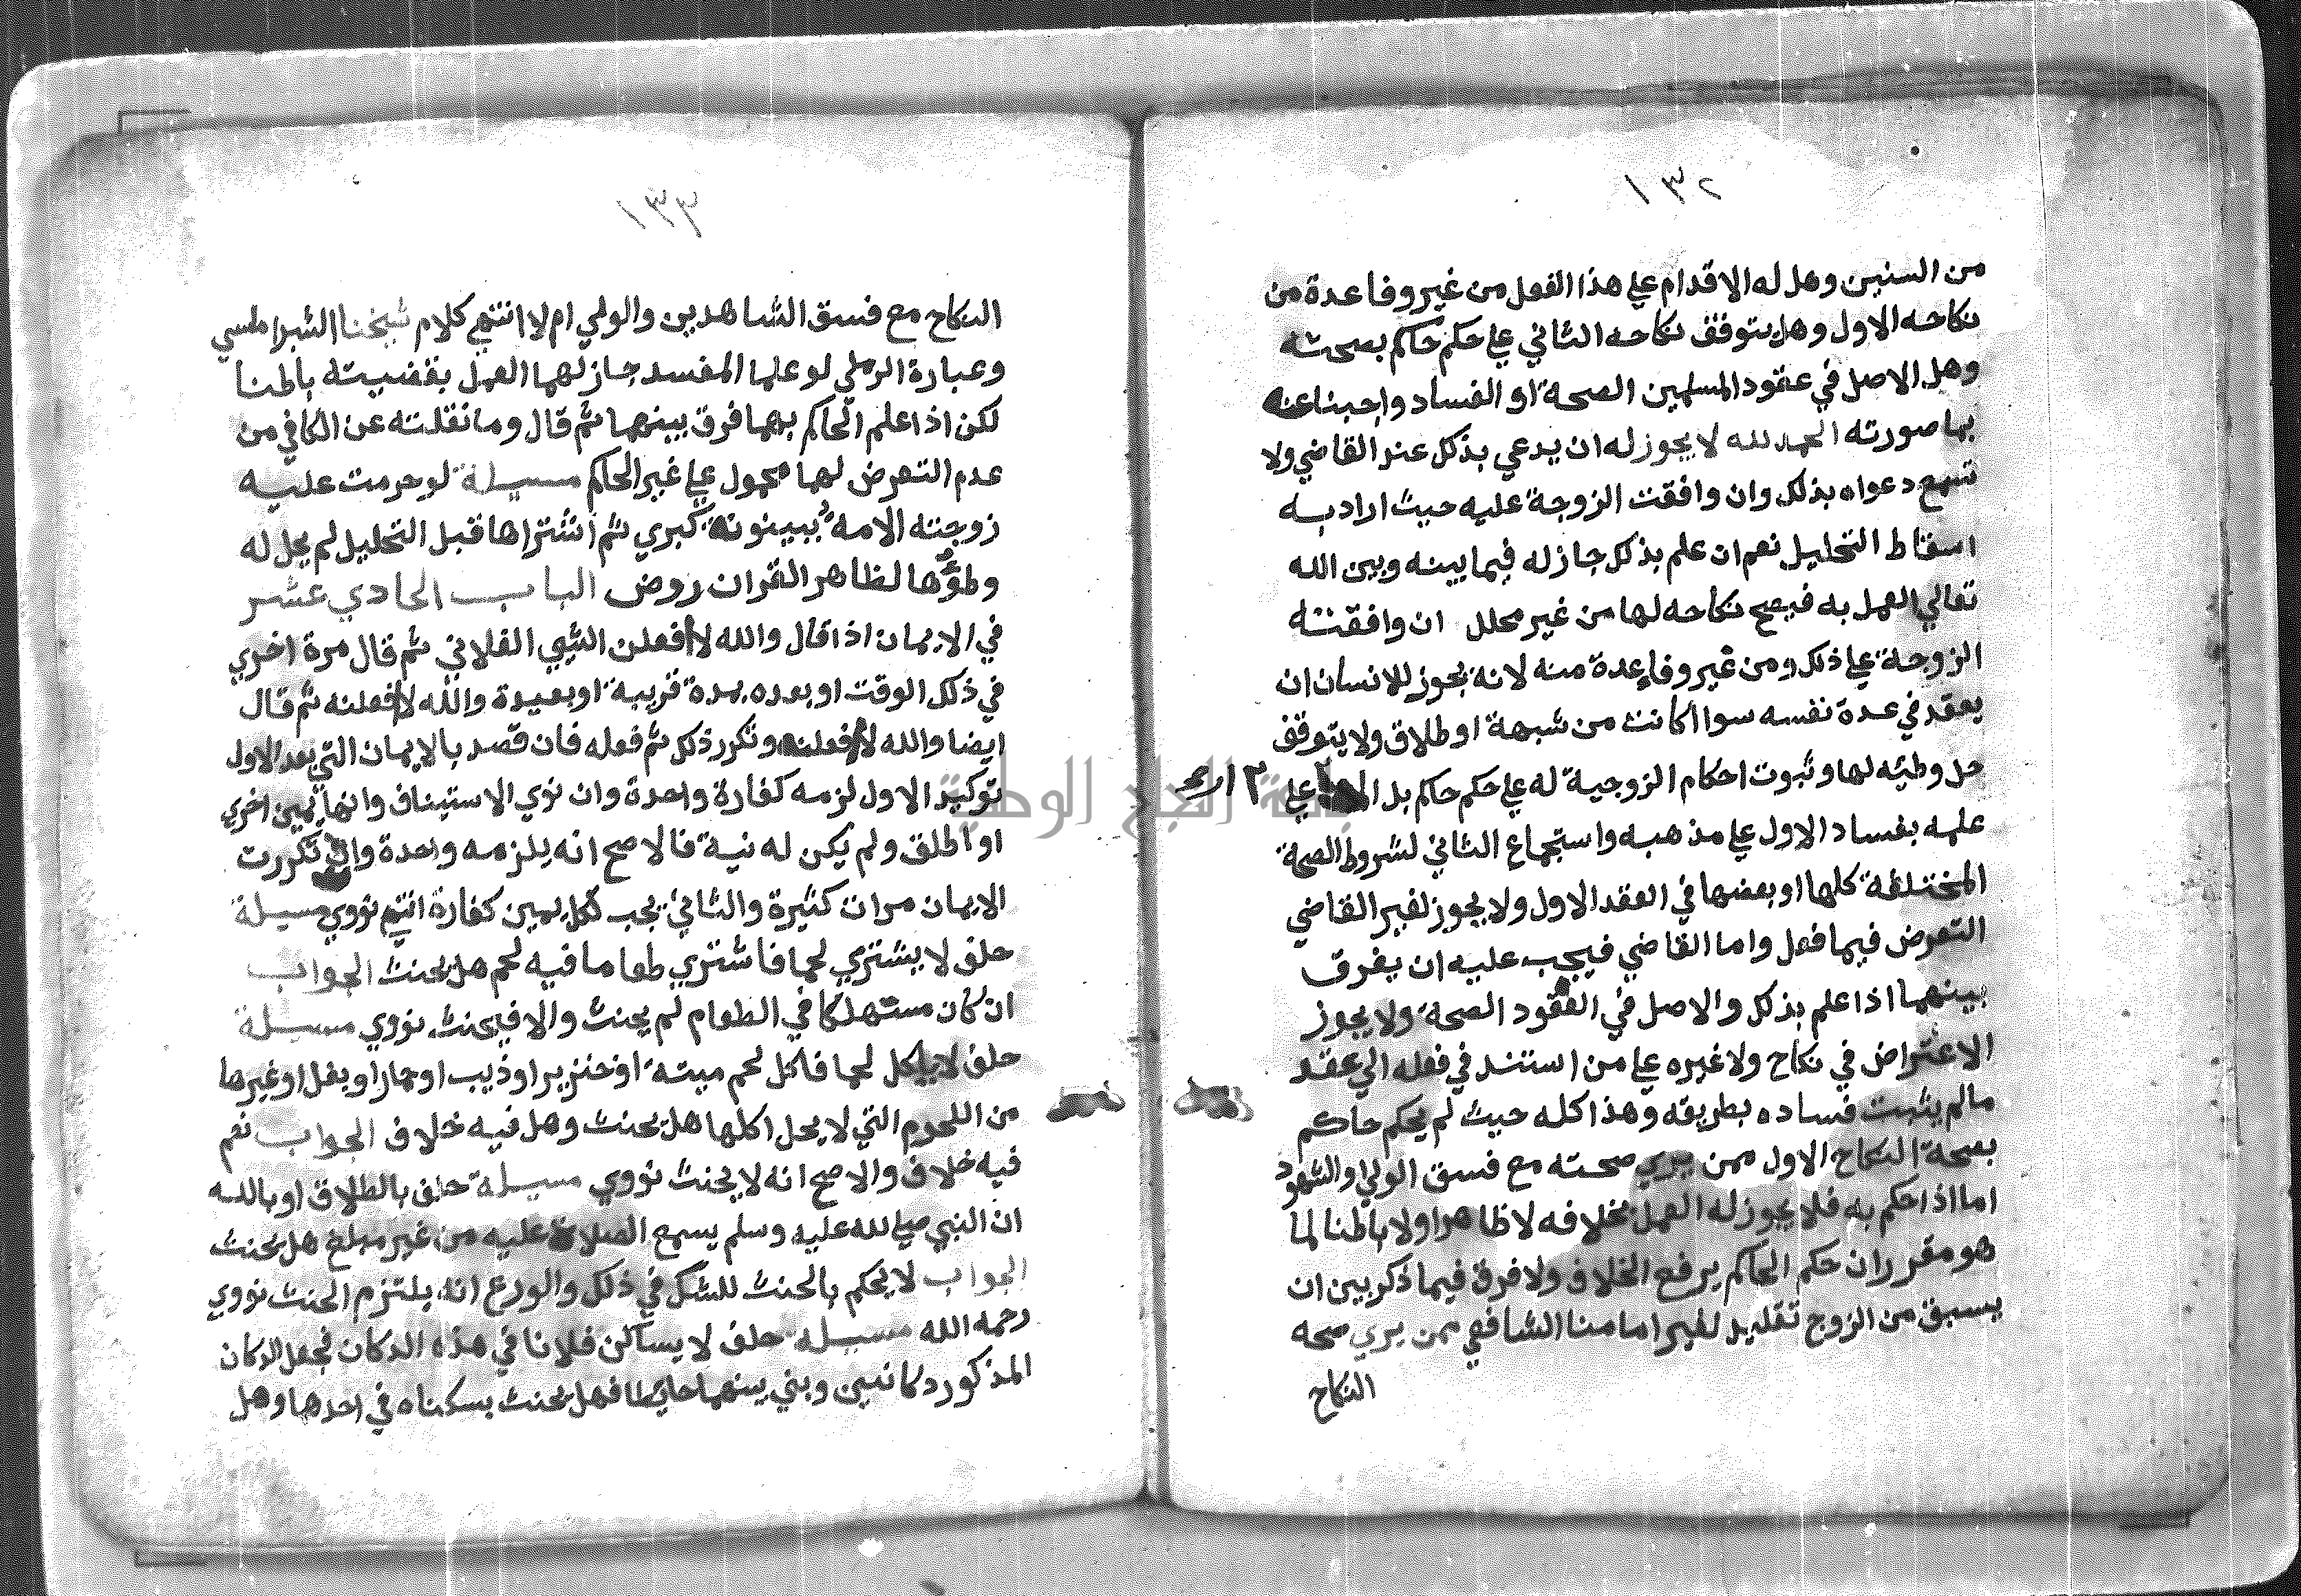 ١٣٢
من السنين وهل له الاقدام علي هذا الفعل من غير وفا عدة من
نكاحه الاول وهل يتوقف نكاحه الثاني علي حكم حاكم بصحته
وهل الاصل في عقود المسلمين الصحة او الفساد واجبنا عنه
بما صورته الحمد لله لا يجوز له ان يدعي بذلك عند القاضي ولا
تسمع دعواه بذلك وان وافقت الزوجة عليه حيث اراد به
اسقاط التحليل نعم ان علم بذلك جاز له فيما بينه وبين الله
تعالي العمل به فيصح نكاحه لها من غير محلل ان وافقته
الزوجة علي ذلك ومن غير وفاء عدة منه لانه يجوز للانسان ان
يعقد في عدة نفسه سوا اكانت من شبهة او طلاق ولا يتوقف
حل وطئه لها وثبوت احكام الزوجية له علي حكم حاكم بل المدار علي
علمه بفساد الاول علي مذهبه واستجماع الثاني لشروط الصحة
المختلفة كلها او بعضها في العقد الاول ولا يجوز لغير القاضي
التعرض فيما فعل واما القاضي فيجب عليه ان يفرق
بينهما اذا علم بذلك والاصل في العقود الصحة ولا يجوز
الاعتراض في نكاح ولا غيره علي من استند في فعله الي عقد
مالم يثبت فساده بطريقه وهذا كله حيث لم يحكم حاكم
بصحة النكاح الاول ممن يري صحته مع فسق الولي او الشهود
اما اذا حكم به فلا يجوز له العمل بخلافه لا ظاهرا ولا باطنا لما
هو مقرر ان حكم الحاكم يرفع الخلاف ولا فرق فيما ذكر بين ان
يسبق من الزوج تقليد لغير امامنا الشافعي ممن يري صحه
النكاح
١٣٣
النكاح مع فسق الشاهدين والولي ام لا انتهي كلام شيخنا الشبراملسي
وعبارة الرملي لو علما المفسد جاز لهما العمل بقضيته باطنا
لكن اذا علم الحاكم بهما فرق بينهما ثم قال وما نقلته عن الكافي من
عدم التعرض لهما محمول علي غير الحاكم مسيلة لو حرمت عليه
زوجته الامة ببينونة كبري ثم اشتراها قبل التحليل لم يحل له
وطؤها لظاهر القران روض الباب الحادي عشر
في الايمان اذا قال والله لافعلن الشيي الفلاني ثم قال مرة اخري
في ذلك الوقت او بعده بمدة قريبة او بعيدة والله لافعلنه ثم قال
ايضا والله لافعلنه وتكرر ذلك ثم فعله فان قصد بالايمان التي بعد الاول
توكيد الاول لزمه كفارة واحدة وان نوي الاستيناف وانها يمين اخري
او اطلق ولم يكن له نية فالاصح انه يلزمه واحدة وان تكررت
الايمان مرات كثيرة والثاني يجب لكل يمين كفارة انتهي نووي مسيلة
حلف لا يشتري لحما فاشتري طعاما فيه لحم هل يحنث الجواب
ان كان مستهلكا في الطعام لم يحنث والا فيحنث نووي مسيلة
حلف لا ياكل لحما فاكل لحم ميتة او خنزير او ذيب او حمار او بغل او غيرها
من اللحوم التي لا يحل اكلها هل يحنث وهل فيه خلاف الجواب نعم
فيه خلاف والاصح انه لا يحنث نووي مسيلة حلف بالطلاق او بالله
ان النبي صلي الله عليه وسلم يسمع الصلاة عليه من غير مبلغ هل يحنث
الجواب لا يحكم بالحنث للشك في ذلك والورع انه يلتزم الحنث نووي
رحمه الله مسيلة حلف لا يساكن فلانا في هذه الدكان فجعل الدكان
المذكور دكانين وبني بينهما حايطا فهل يحنث بسكناه في احدها وهل